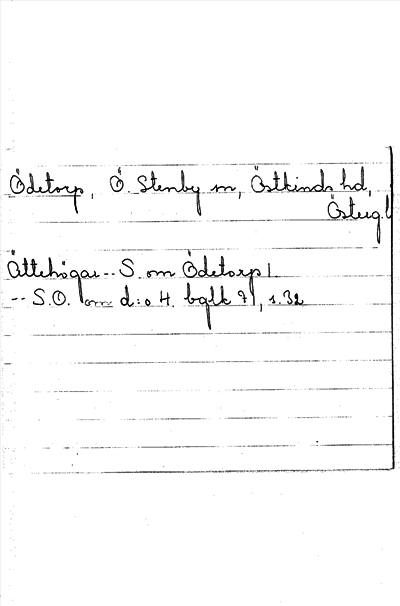 Ödetorp, Ö. Stenby sn, Östkinds hd,
Östergl
Ättehögar -- S. om Ödetorp 1.
-- S.O. om d:o 4. bglk 71, s. 32